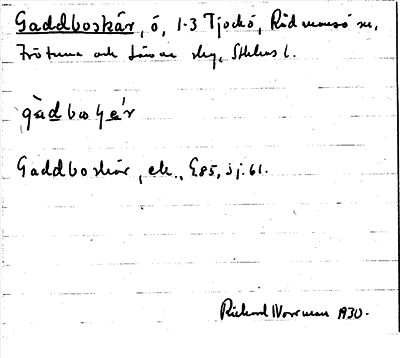 Gaddboskär, ö, 1-3 Tjockö, Rådmansö sn,
Frötuna och Länna skg, Sthlms l.
gàdboʃér
Gaddboskär, ek., E85, sj. 61.
Rickard Norrman 1930.